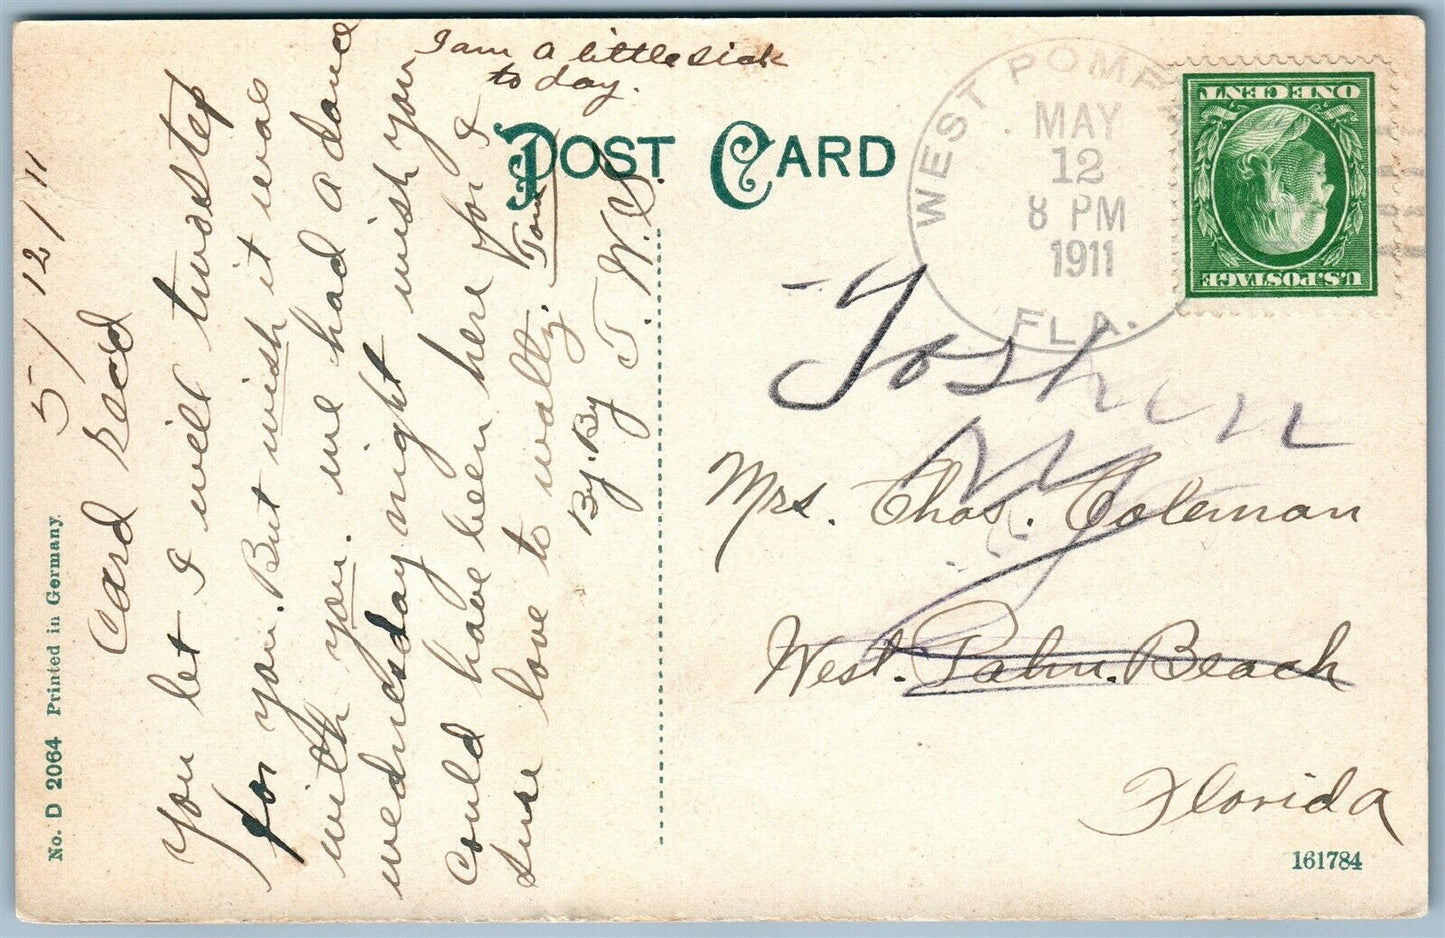 I am a little sick
to day.
POST CARD
WEST POMP
MAY
12
8 PM
1911
FLA.
ONE CENT
U.S. POSTAGE
5/12/11
Card Recd
You bet I will twostep
for you. But wish it was
with you. we had a dance
wednesday night wish you
could have been here for I
sure love to waltz.
By. By
J. W. S.
Goshen
NY
Mrs. Chas. Coleman
West. Palm. Beach
Florida
161784
No. D 2064 Printed in Germany